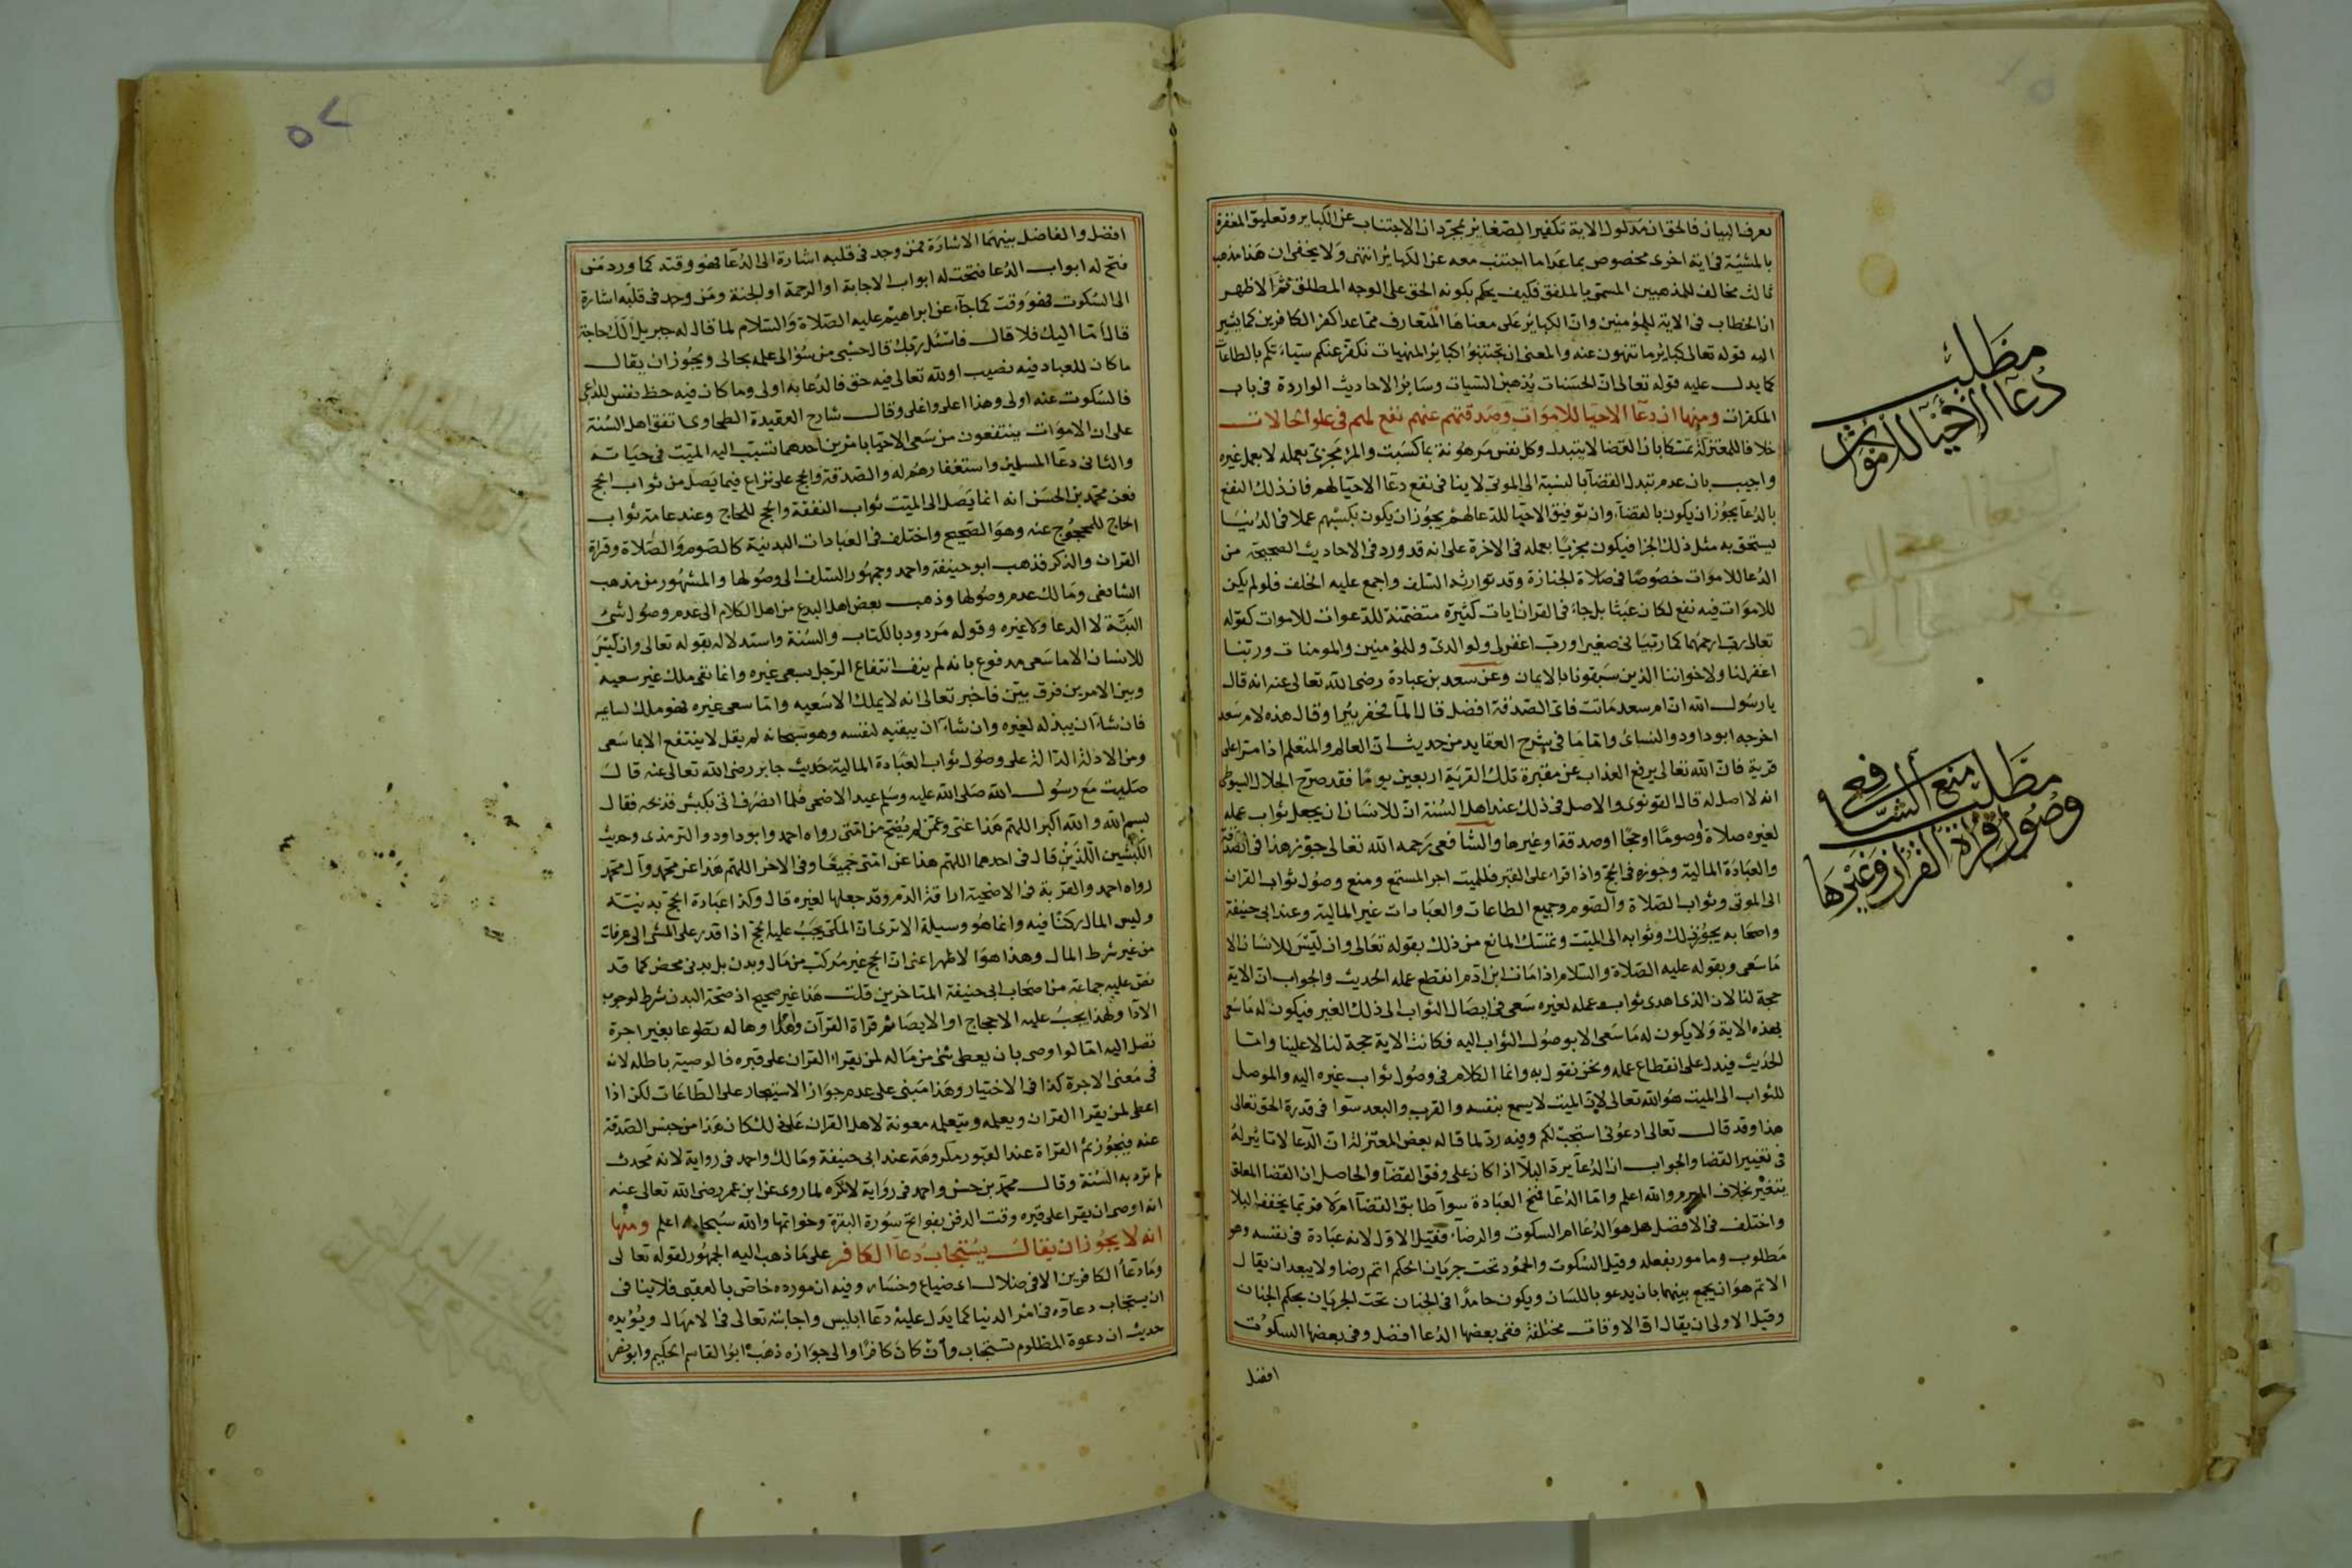 يعرف البيان فالحق ان مدلول الاية تكفير الصغائر بمجرد ان الاجتناب عن الكبائر وتعليق المغفرة
بالمشيّة في اية اخرى مخصوص بما عدا ما اجتنب معه عن الكبائر انتهى ولا يخفى ان هذا مذهب
ثالث مخالف للمذهبين المسمى بالملفق فكيف يحكم بكونه الحق على الوجه المطلق ثم الاظهر
ان الخطاب في الاية للمؤمنين وان الكبائر على معناها المتعارف مما عدا كفر الكافرين كما يشير
اليه قوله تعالى كبائر ما تنهون عنه والمعنى ان تجتنبوا كبائر المنهيات نكفر عنكم سيآتكم بالطاعات
كما يدل عليه قوله تعالى ان الحسنات يذهبن السيات وسائر الاحاديث الواردة في باب
المكفرات ومنها ان دعآ الاحيا للاموات وصدقتهم عنهم نفع لهم في علو الحالات
خلافا للمعتزلة تمسكا بان القضا لا يتبدل وكل نفس مرهونة بما كسبت والمرء مجزى بعمله لا بعمل غيره
واجيب بان عدم تبدل القضآ بالنسبة الى الموتى لا ينافى نفع دعآ الاحيآ لهم فان ذلك النفع
بالدعآ يجوز ان يكون بالقضآ وان توفيق الاحيآ للدعآ لهم يجوز ان يكون بكسبهم عملا في الدنيا
يستحق به مثل ذلك الجزا فيكون مجزيا بعمله في الاخرة على انه قد ورد في الاحاديث الصحيحة من
الدعا للاموات خصوصا في صلاة الجنازة وقد توارثه السلف واجمع عليه الخلف فلو لم يكن
للاموات فيه نفع لكان عبثا بل جاء في القران ايات كثيرة متضمنة للدعوات للاموات كقوله
تعالى رب ارحمهما كما ربيانى صغيرا ورب اغفر لى ولوالدى وللمؤمنين والمومنات وربنا
اغفر لنا ولاخواننا الذين سبقونا بالايمان وعن سعد بن عبادة رضى الله تعالى عنه انه قال
يا رسول الله ان ام سعد ماتت فاى الصدقة افضل قال المآ فحفر بيرا وقال هذه لام سعد
اخرجه ابو داود والنسائ واما ما في شرح العقايد من حديث ان العالم والمتعلم اذا مرا على
قرية فان الله تعالى يرفع العذاب عن مقبرة تلك القرية اربعين يوما فقد صرح الجلال السيوطى
انه لا اصل له قال القونوى والاصل في ذلك عند اهل السنة ان للانسان ان يجعل ثواب عمله
لغيره صلاة او صوما او حجا او صدقة او غيرها والشافعى رحمه الله تعالى جوز هذا في الصدقة
والعبادة المالية وجوزه في الحج واذا قراء على القبر فللميت اجر المستمع ومنع وصول ثواب القران
الى الموتى وثواب الصلاة والصوم وجميع الطاعات والعبادات غير المالية وعند ابى حنيفة
واصحابه يجوز ذلك وثوابه الى الميت وتمسك المانع من ذلك بقوله تعالى وان ليس للانسان الا
ما سعى وبقوله عليه الصلاة والسلام اذا مات ابن ادم انقطع عمله الحديث والجواب ان الاية
حجة لنا لان الذى اهدى ثواب عمله لغيره سعى في ايصال الثواب الى ذلك الغير فيكون له ما سعى
بهذه الاية ولا يكون له ما سعى الا بوصول الثواب اليه فكانت الاية حجة لنا لا علينا واما
الحديث فيدل على انقطاع عمله ونحن نقول به وانما الكلام في وصول ثواب غيره اليه والموصل
للثواب الى الميت هو الله تعالى لان الميت لا يسمع بنفسه والقرب والبعد سوا في قدرة الحق تعالى
هذا وقد قال تعالى ادعونى استجب لكم وفيه رد لما قاله بعض المعتزلة ان الدعآ لا تاثير له
في تغيير القضا والجواب ان الدعآ يرد البلآ اذا كان على وفق القضآ والحاصل ان القضا المعلق
يتغير بخلاف المبرم والله اعلم واما الدعآ فمخ العبادة سوآ طابق القضآ ام لا فربما يخفف البلا
واختلف في الافضل هل هو الدعآ ام السكوت والرضآ فقيل الاول لانه عبادة في نفسه وهو
مطلوب ومامور بفعله وقيل السكوت والخمود تحت جريان الحكم اتم رضا ولا يبعد ان يقال
الاتم هو ان يجمع بينهما بان يدعو باللسان ويكون حامدا في الجنان تحت الجريان بحكم الجنان
وقيل الاولى ان يقال ان الاوقات مختلفة ففى بعضها الدعا افضل وفي بعضها السكوت
افضل
مطلب
دعآ الاحيآ للاموات
مطلب منع الشافعى
وصول قراة القران وغيرها
٥٢
افضل والفاضل بينهما الاشارة فمن وجد في قلبه اشارة الى الدعآ فهو وقته كما ورد من
فتح له ابواب الدعا فتحت له ابواب الاجابة او الرحمة او الجنة ومن وجد في قلبه اشارة
الى السكوت فهو وقت كما جآء عن ابراهيم عليه الصلاة والسلام لما قال له جبريل الك حاجة
قال اما اليك فلا قال فاسئل ربك قال حسبى من سؤالى علمه بحالى ويجوز ان يقال
ما كان للعباد فيه نصيب او لله تعالى فيه حق فالدعا به اولى وما كان فيه حظ نفس للداعى
فالسكوت عنه اولى وهذا اعلى واغلى وقال شارح العقيدة الطحاوى اتفق اهل السنة
على ان الاموات ينتفعون من سعى الاحيا بامرين احدهما تسبب اليه الميت في حياته
والثانى دعآ المسلمين واستغفارهم له والصدقة والحج على نزاع فيما يصل من ثواب الحج
فعن محمد بن الحسن انه انما يصل الى الميت ثواب النفقة والحج للحاج وعند عامة ثواب
الحاج للمحجوج عنه وهو الصحيح واختلف في العبادات البدنية كالصوم والصلاة وقراة
القران والذكر فذهب ابو حنيفة واحمد وجمهور السلف الى وصولها والمشهور من مذهب
الشافعى ومالك عدم وصولها وذهب بعض اهل البدع من اهل الكلام الى عدم وصول شئ
البتة لا الدعآ ولا غيره وقوله مردود بالكتاب والسنة واستدلاله بقوله تعالى وان ليس
للانسان الا ما سعى مدفوع بانه لم ينف انتفاع الرجل بسعى غيره وانما نفى ملك غير سعيه
وبين الامرين فرق بين فاخبر تعالى انه لا يملك الا سعيه واما سعى غيره فهو ملك لساعيه
فان شاء ان يبذله لغيره وان شاء ان يبقيه لنفسه وهو سبحانه لم يقل لا ينتفع الا بما سعى
ومن الادلة الدالة على وصول ثواب العبادة المالية حديث جابر رضى الله تعالى عنه قال
صليت مع رسول الله صلى الله عليه وسلم عيد الاضحى فلما انصرف اتى بكبش فذبحه فقال
بسم الله والله اكبر اللهم هذا عنى وعمن لم يضح من امتى رواه احمد وابو داود والترمذى وحديث
الكبشين اللذين قال في احدهما اللهم هذا عن امتى جميعا وفي الاخر اللهم هذا عن محمد وآل محمد
رواه احمد والقربة في الاضحية اراقة الدم وقد جعلها لغيره قال وكذا عبادة الحج بدنيته
وليس المال ركنا فيه وانما هو وسيلة الا ترى ان المكى يجب عليه الحج اذا قدر على المشى الى عرفات
من غير شرط المال وهذا هو الاظهر اعنى ان الحج غير مركب من مال وبدن بل بدنى محض كما قد
نص عليه جماعة من اصحاب ابى حنيفة المتاخرين قلت هذا غير صحيح اذ صحة البدن شرط لوجوب
الادآ ولهذا يجب عليه الاحجاج او الايصا ثم قراة القرآن واهداوها له تطوعا بغير اجرة
تصل اليه اما لو اوصى بان يعطى شئ من ماله لمن يقراء القران على قبره فالوصية باطلة لانه
في معنى الاجرة كذا في الاختيار وهذا مبنى على عدم جواز الاستيجار على الطاعات لكن اذا
اعطى لمن يقرا القران ويعلمه ويتعلمه معونة لاهل القران على ذلك كان هذا من جنس الصدقة
عنه فيجوز ثم القراة عند القبور مكروهة عند ابى حنيفة ومالك واحمد في رواية لانه محدث
لم ترد به السنة وقال محمد بن حسن واحمد في رواية لا تكره لما روى عن ابن عمر رضى الله تعالى عنه
انه اوصى ان يقرا على قبره وقت الدفن بفواتح سورة البقرة وخواتمها والله سبحانه اعلم ومنها
انه لا يجوز ان يقال يستجاب دعآ الكافر على ما ذهب اليه الجمهور لقوله تعالى
وما دعآ الكافرين الا في ضلال اى ضياع وخسار وفيه ان مورده خاص بالعقبى فلا ينافى
ان يستجاب دعاوه في امر الدنيا كما يدل عليه دعآ ابليس واجابته تعالى في الامهال ويؤيده
حديث ان دعوة المظلوم تستجاب وان كان كافرا والى جوازه ذهب ابو القاسم الحكيم وابو نصر